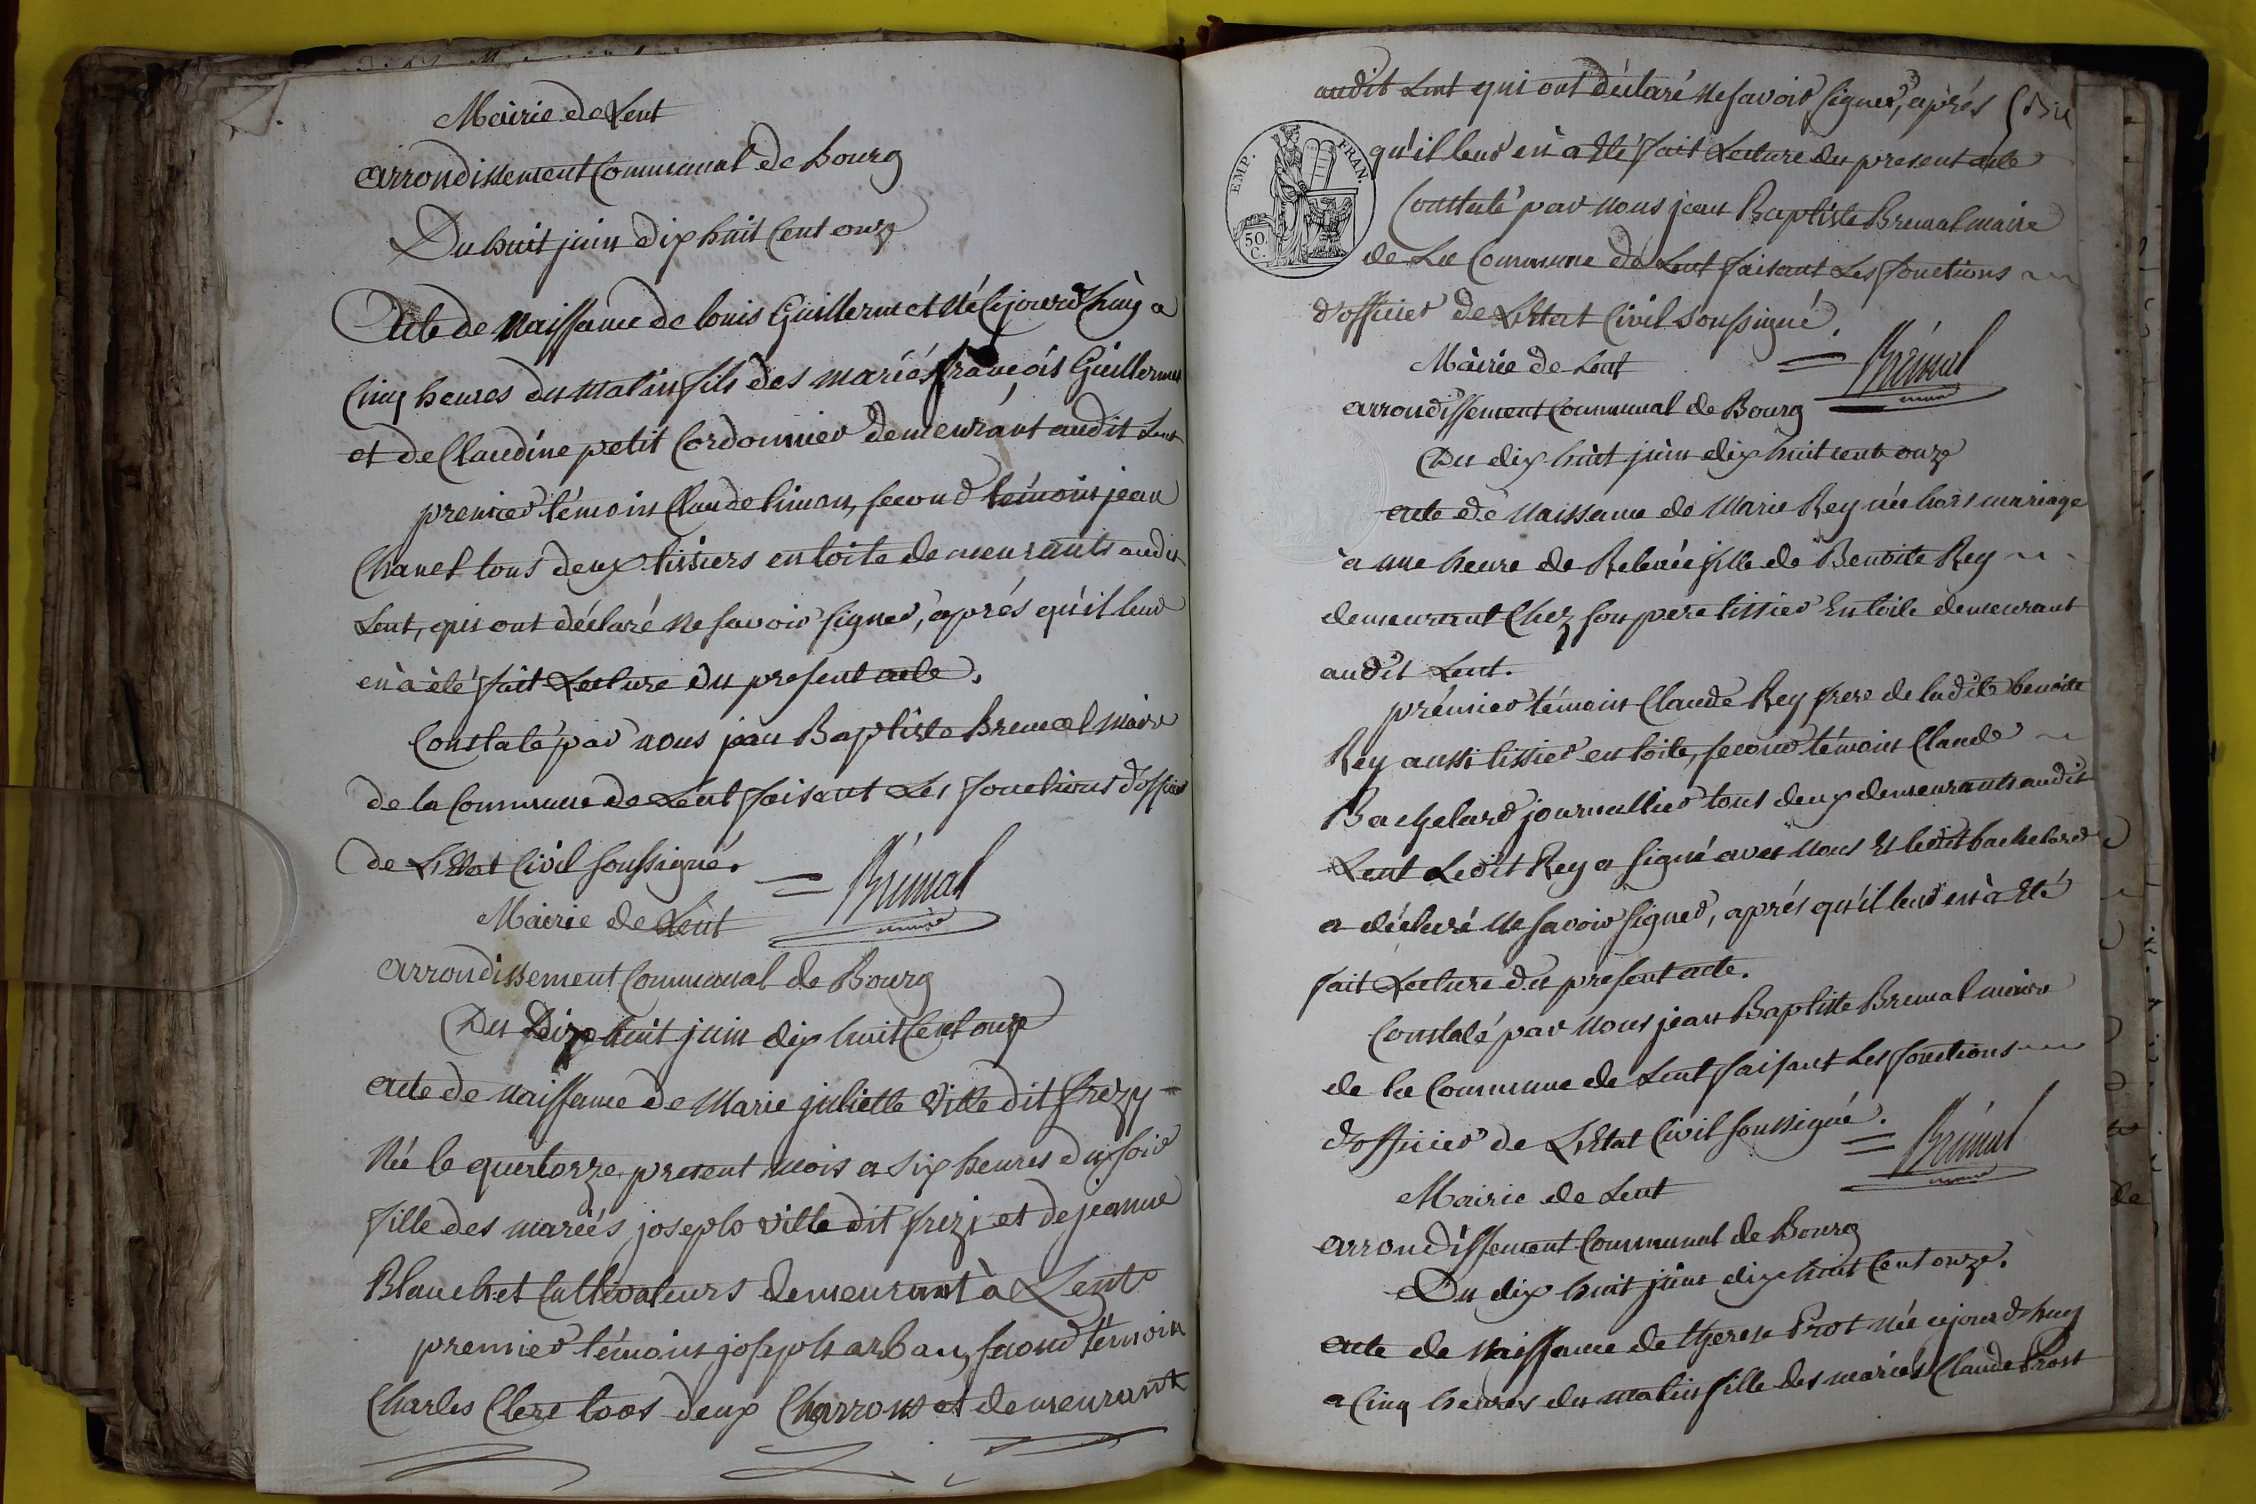 Mairie de Lent
arrondissement Communal de Bourg
Du huit juin dix huit Cent onze
Acte de Naissance de louis Guillermet Né Cejourd'huy a
Cinq heures du Matin fils des mariés françois Guillermet
et de Claudine petit Cordonnier demeurant audit Lent
premier témoin Claude limon, second témoin jean
Chanel tous deux tissiers en toile demeurants audit
Lent, qui ont déclaré Ne savoir signer, aprés qu'il leur
en à été fait Lecture du present acte.
Constaté par nous jean Baptiste Bremal Maire
de la Commune de Lent faisant Les fonctions d'officier
de L'Etat Civil soussigné.
Brémal
Mairie de Lent
arrondissement Communal de Bourg
Du Dix huit juin dix huit Cent onze
acte de naissance de Marie juliette Ville dit frezy
Née le quatorze present mois a six heures du soir
fille des mariés joseph ville dit frezi et de jeanne
Blanchet Cultivateurs demeurant à Lent
premier témoin joseph arban, second témoin
Charles Clere tous deux Charrons et demeurant
audit Lent qui ont déclaré Ne savoir signer, aprés
EMP. FRAN.
50. C.
qu'il leur en a Eté fait Lecture du present acte
Constaté par nous jean Baptiste Bremal maire
de La Commune de Lent faisant Les fonctions
d'officier de L'Etat Civil soussigné.
Brémal
Mairie de Lent
arrondissement Communal de Bourg
Du dix huit juin dix huit cent onze
acte de Naissance de Marie Rey née hors mariage
a une heure de Relevée fille de Benoite Rey
demeurant Chez son pere tissier En toile demeurant
audit Lent.
prémier témoin Claude Rey frere de ladite benoite
Rey aussi tissier en toile, second témoin Claude
Bachelard journallier tous deux demeurants audit
Lent Ledit Rey a signé avec Nous Et ledit bachelard
a déclaré Ne savoir signer, aprés qu'il leur en à Eté
fait Lecture du present acte.
Constaté par Nous jean Baptiste Bremal maire
de la Commune de Lent faisant Les fonctions
d'officier de L'Etat Civil soussigné.
Brémal
Mairie de Lent
arrondissement Communal de Bourg
Du dix huit juin dix huit Cent onze.
acte de Naissance de therese Prot Née cejourd'huy
a Cinq heures du matin fille des mariés Claude Prost